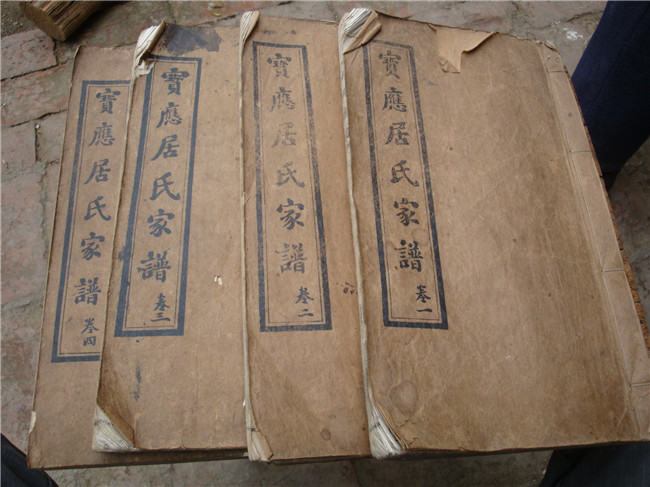 寶應居氏家譜
卷一
寶應居氏家譜
卷二
寶應居氏家譜
卷三
寶應居氏家譜
卷四